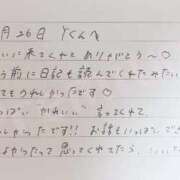 月26日 Yくんへ
いに来てくれて ありがとう〜♡
う前に日記も読んでくれてたみたい
てもうれしかったです♡
っぱい かわいい 言ってくれて
しかったです!! お話もいっぱいで
よかったって思ってくれてたら